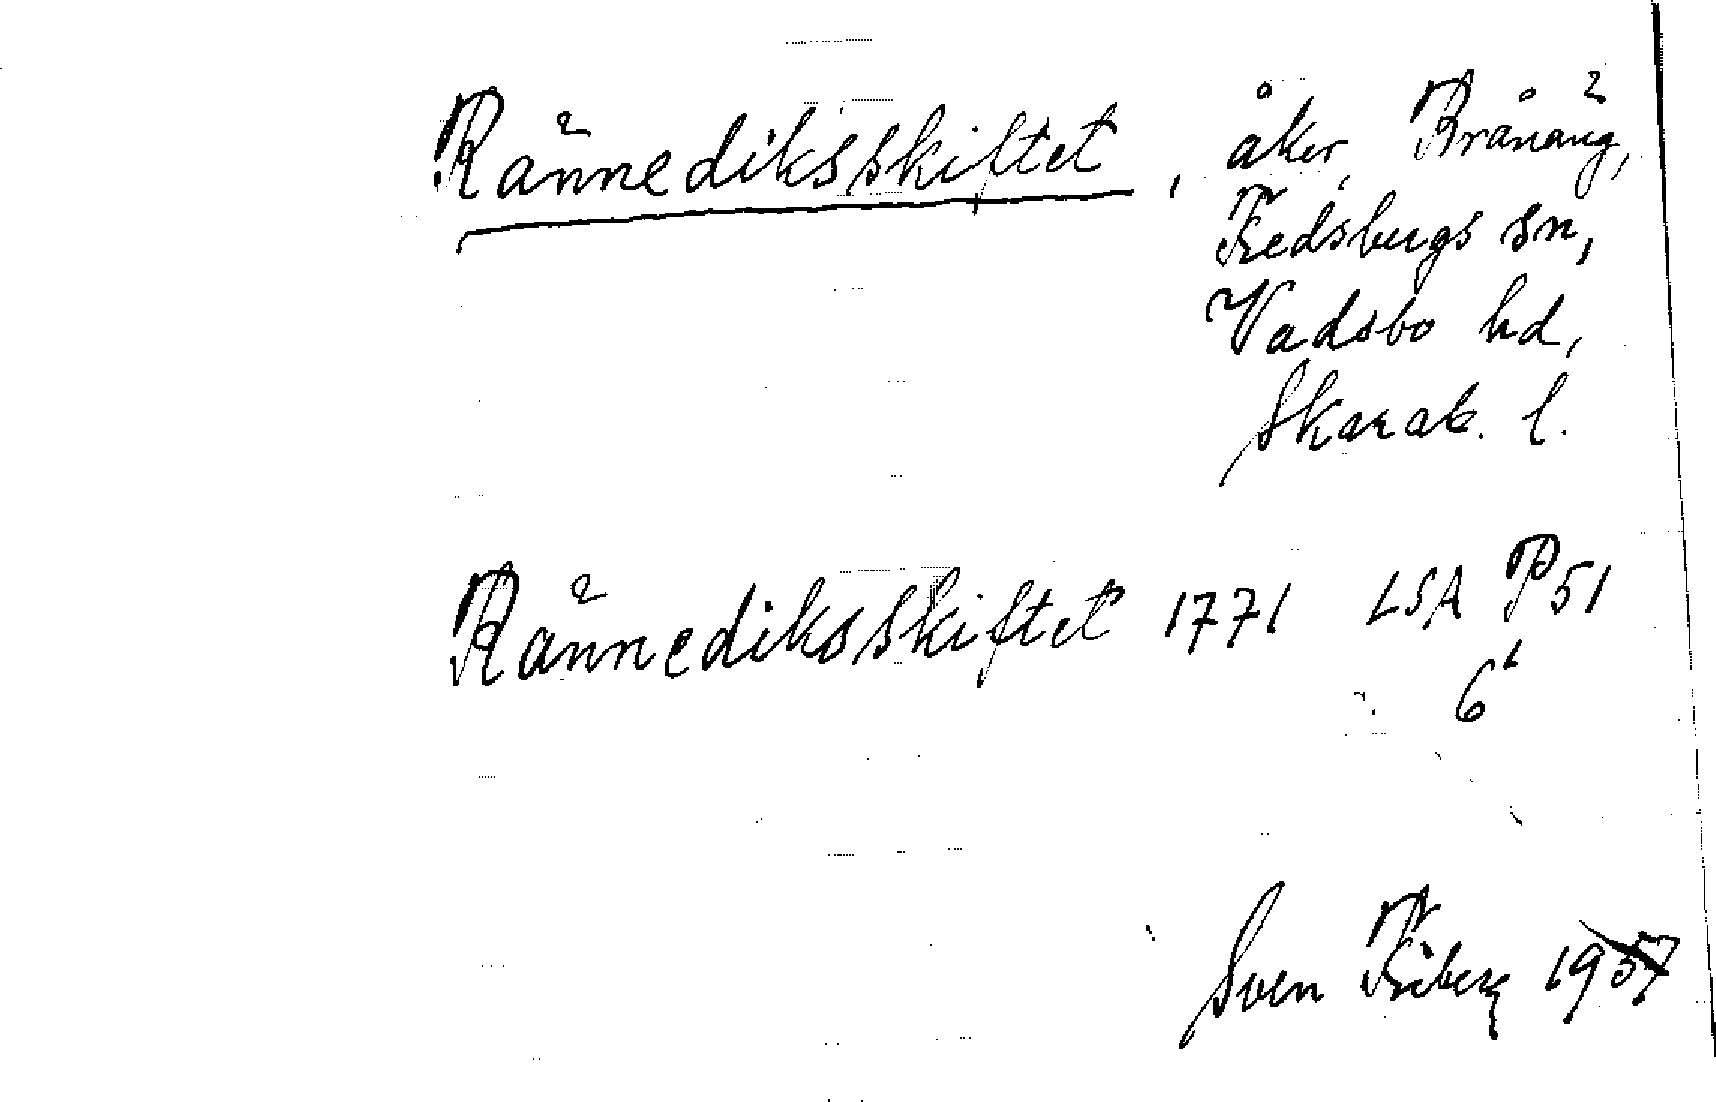 Rännediksskiftet, åker, Rrånäng,
Fredsbergs sn,
Vadsbo hd,
Skarab. l.
Rännediksskiftet 1771 LSA P51
6¹
Sven Friberg 1957